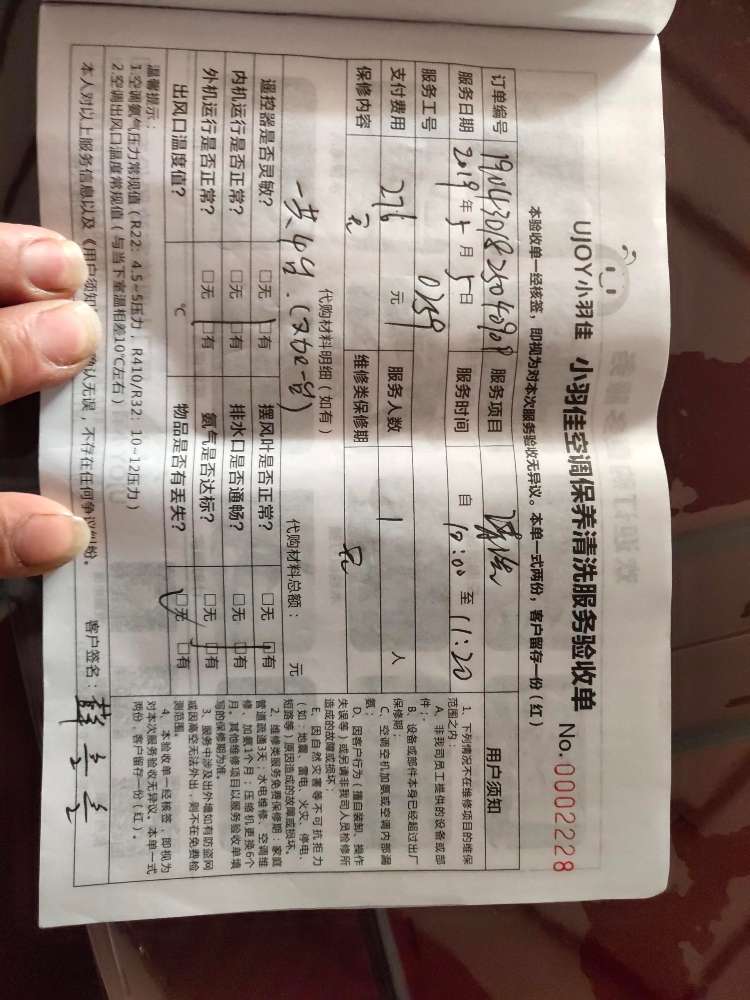 UJOY小羽佳 小羽佳空调保养清洗服务验收单 No.0002228
本验收单一经核签，即视为对本次服务验收无异议。本单一式两份，客户留存一份（红）
订单编号 服务项目 清洗
服务日期 2019年5月5日 服务时间 自 至 11:20
服务工号 0759
支付费用 276 元 服务人数 1 人
保修内容 无 维修类保修期 无
代购材料明细（如有） 代购材料总额： 元
一共4台.
遥控器是否灵敏? □无 □有 摆风叶是否正常? □无 □有
内机运行是否正常? □无 □有 排水口是否通畅? □无 □有
外机运行是否正常? □无 □有 氨气是否达标? □无 □有
出风口温度值? ℃ 物品是否有丢失? □无 □有
温馨提示：
1.空调氨气压力常规值（R22：4.5~5压力，R410/R32：10~12压力）
2.空调出风口温度常规值（与当下室温相差10℃左右）
本人对以上服务信息以及《用户须知 确认无误，不存在任何争议纠纷。 客户签名：
用户须知
1、下列情况不在维修项目的维保
范围之内：
A、非我司员工提供的设备或部
件；
B、设备或部件本身已经超过出厂
保修期；
C、空调空机加氨或空调内部漏
氨；
D、因客户行为（擅自装卸、操作
失误等）或另请非我司人员检修所
造成的故障或损坏；
E、因自然灾害等不可抗拒力
（如：地震、雷电、火灾、停电、
短路等）原因造成的故障或损坏。
2、维修类服务免费保修期：家庭
管道疏通3天；水电维修、空调维
修、加氨1个月；压缩机更换6个
月。其他维修项目以服务验收单填
写的保修期为准。
3、服务中涉及出外墙如有防盗网
或因高空无法外出，则不在免费检
测范围。
4、本验收单一经核签，即视为
对本次服务验收无异议。本单一式
两份，客户留存一份（红）。